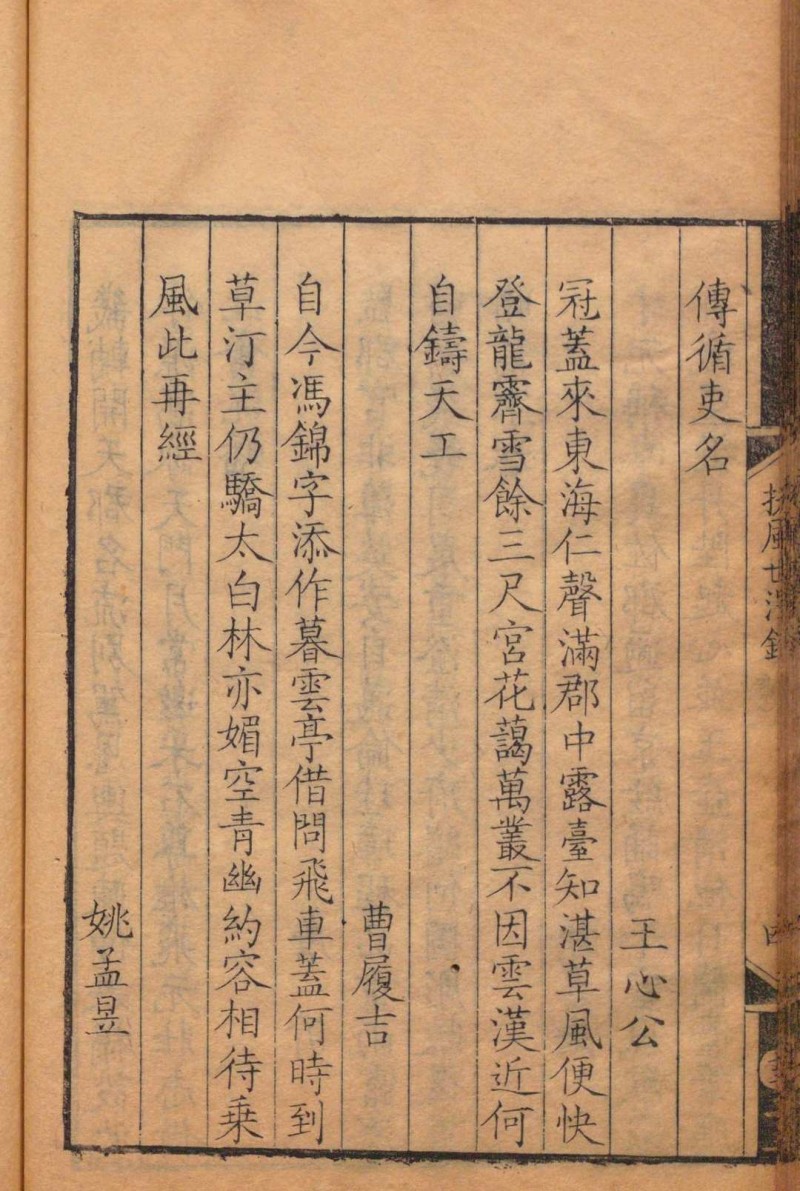 傳循吏名
王心公
冠蓋來東海仁聲滿郡中露臺知湛草風便快
登龍霽雪餘三尺宮花藹萬叢不因雲漢近何
自鑄天工
曹履吉
自今馮錦字添作暮雲亭借問飛車蓋何時到
草汀主仍驕太白林亦媚空青幽約容相待乗
風此再經
姚孟昱